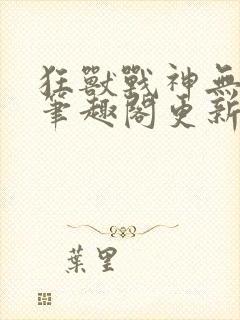 狂獸戰神無
筆趣閣更新
葉里